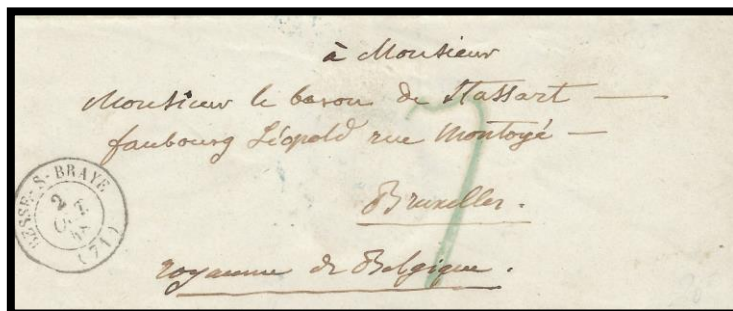 à Monsieur
Monsieur le baron de Stassart —
faubourg Léopold rue Montoyé —
Bruxelles.
royaume de Belgique.
7
BESSE-S-BRAYE
(71)